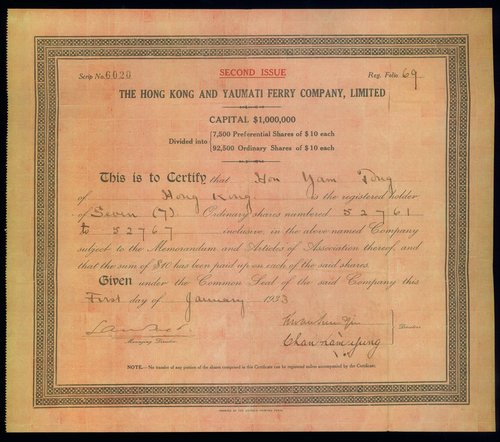 Scrip No. 6020
SECOND ISSUE
Reg. Folio 69
THE HONG KONG AND YAUMATI FERRY COMPANY, LIMITED
CAPITAL $1,000,000
Divided into { 7,500 Preferential Shares of $10 each
92,500 Ordinary Shares of $10 each
This is to Certify that Hon Yam Tong
of Hong Kong is the registered holder
of Seven (7) Ordinary shares numbered 52761
to 52767 inclusive, in the above-named Company
subject to the Memorandum and Articles of Association thereof, and
that the sum of $10 has been paid up on each of the said shares.
Given under the Common Seal of the said Company this
First day of January 1933
Managing Director.
Chan Nam Yung
Directors
NOTE.—No transfer of any portion of the shares comprised in this Certificate can be registered unless accompanied by the Certificate.